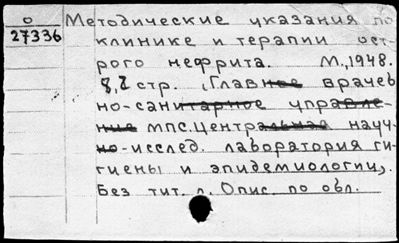 о Методические указания по
27336 клинике и терапии ост-
рого нефрита. М., 1948.
8,2 стр. (Главное врачеб
но-санитарное управле-
ние МПС. Центральная науч-
но-исслед. лаборатория ги-
гиены и эпидемиологии).
Без тит. л. Опис. по обл.